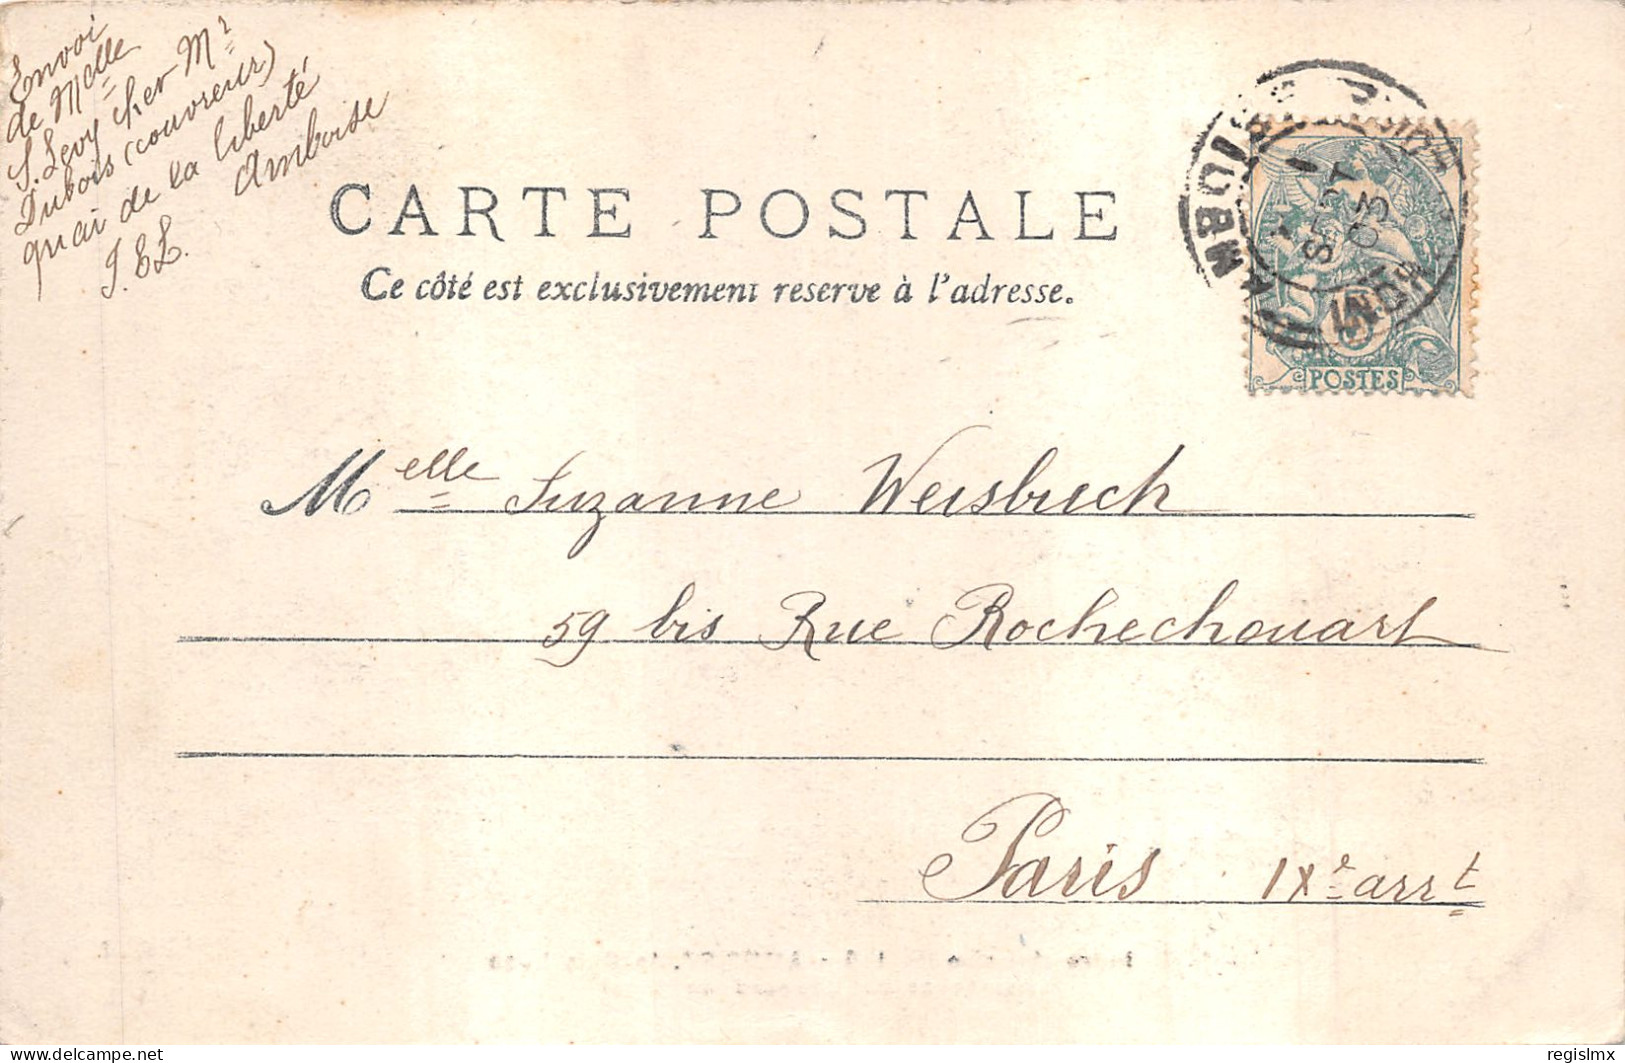 Envoi
de Melle
S. Levy chez Mr
Dubois (couvreur)
quai de la liberté
Amboise
S. E L.
CARTE POSTALE
Ce côté est exclusivement reserve à l'adresse.
SEPT
03
POSTES
Melle Suzanne Weisbuch
59 bis Rue Rochechouart
Paris IXe arrt
delcampe.net
regislmx